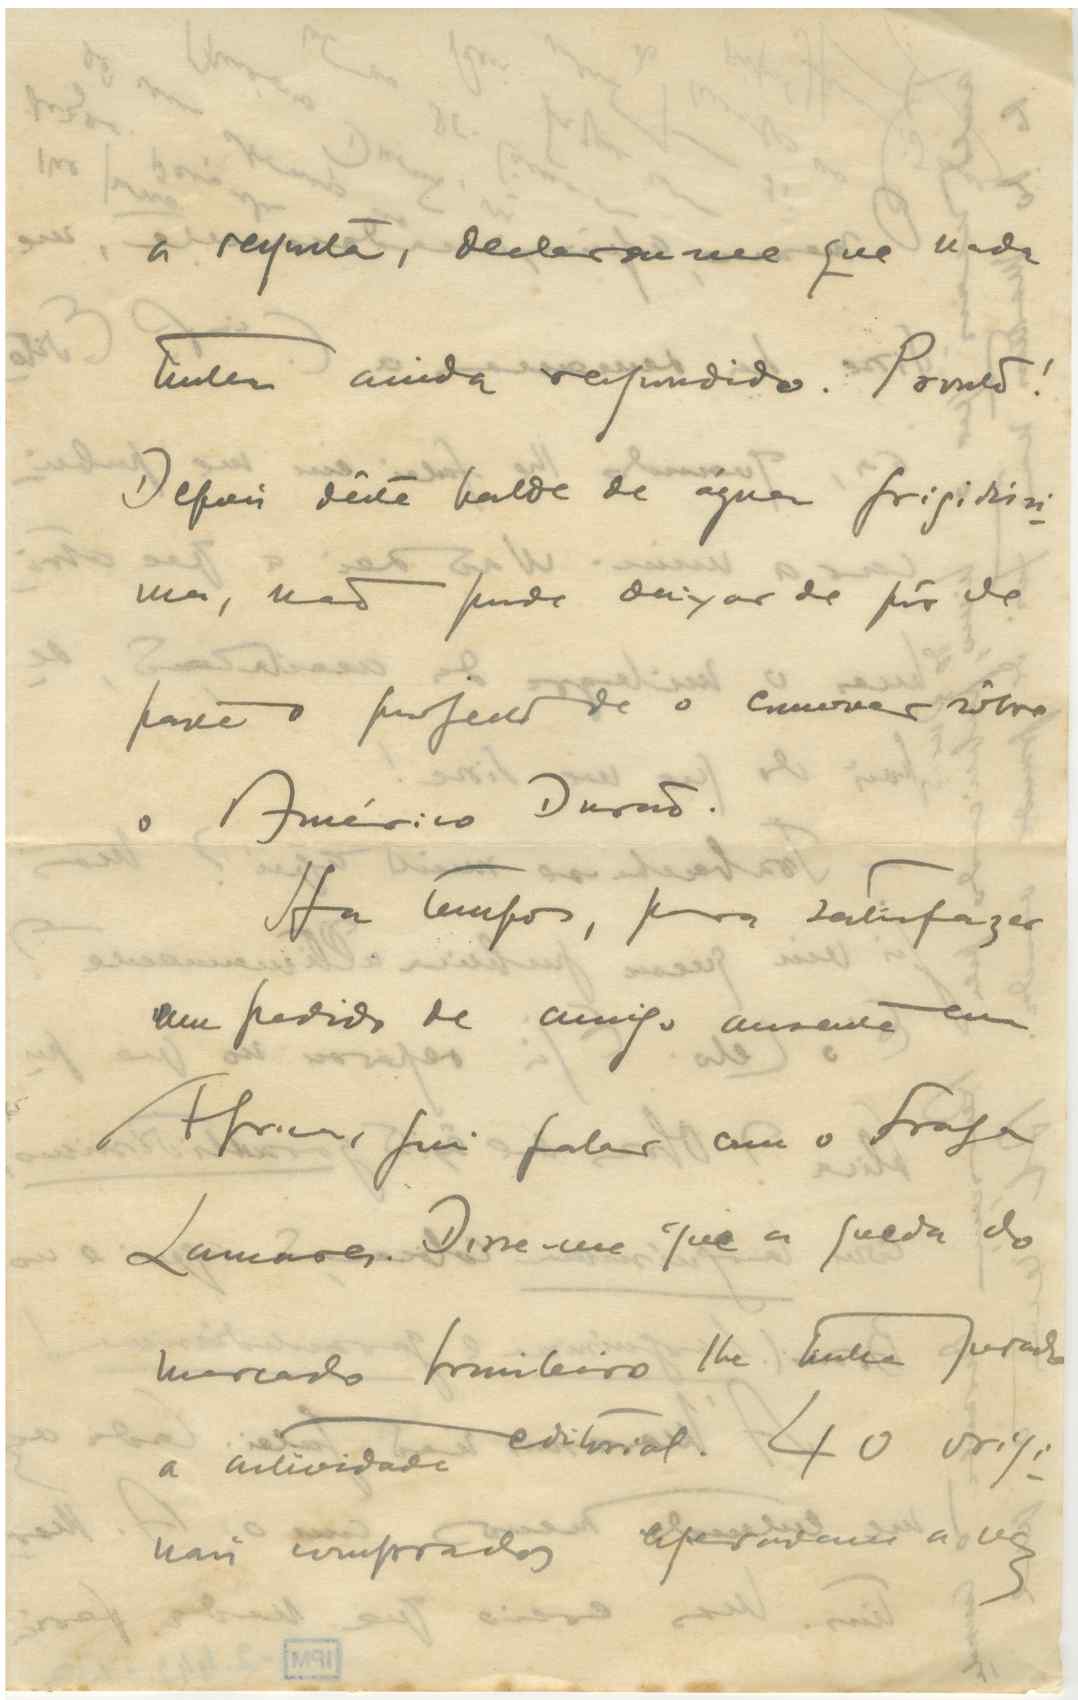 a resposta, declarou-me que nada
tinha ainda respondido. Pronto!
Depois dêste balde de água frigidíssi-
ma, não pude deixar de pôr de
parte o projecto de o conversar sôbre
o Américo Durão.
Ha tempos, para satisfazer
um pedido de amigo ausente em
Africa, fui falar com o Fraga
Lamares. Disse-me que a queda do
mercado brasileiro lhe tinha parado
a actividade editorial. 40 origi-
nais comprados esperavam a vez